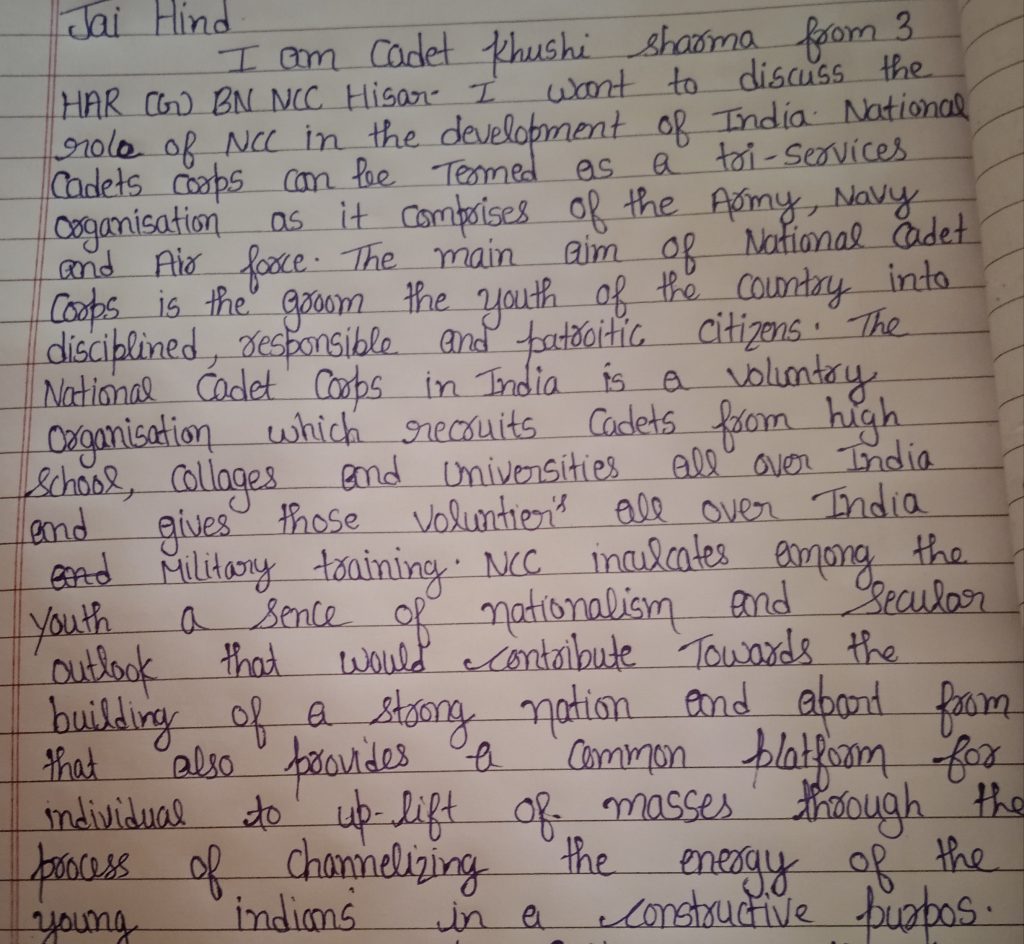 Jai Hind
I am Cadet Khushi sharma from 3
HAR (G) BN NCC Hisar. I want to discuss the
role of NCC in the development of India. National
Cadets Corps can be Termed as a tri-services
organisation as it comprises of the Army, Navy
and Air force. The main aim of National Cadet
Corps is the groom the youth of the country into
disciplined, responsible and patroitic citizens. The
National Cadet Corps in India is a voluntry
organisation which recruits Cadets from high
School, Collages and Universities all over India
and gives those Voluntier's all over India
and Military training. NCC inculcates among the
youth a sence of nationalism and Secular
outlook that would contribute Towards the
building of a strong nation and apart from
that also provides a common platform for
individual to up-lift of masses through the
process of Channelizing the energy of the
young indians in a constructive purpos.